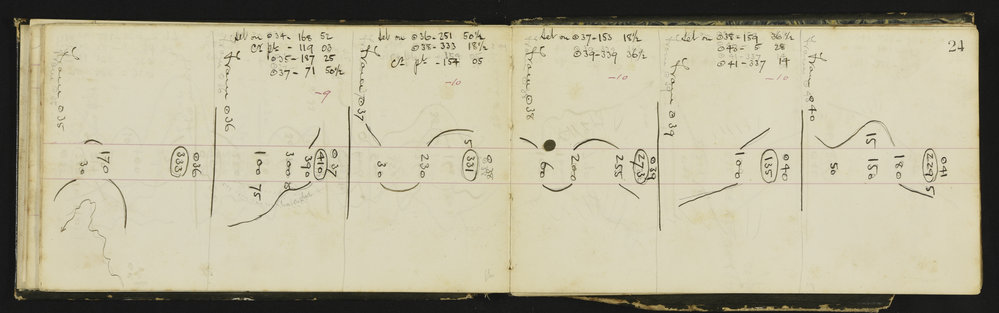 24
Set on ⊙34 - 168 52
Ct pt - 119 03
⊙35 - 187 25
⊙37 - 71 50½
-9
Set on ⊙36 - 251 50½
⊙38 - 333 18½
Ct pt - 154 05
-10
Set on ⊙37 - 153 18½
⊙39 - 339 36½
-10
Set on ⊙38 - 159 36½
⊙40 - 5 28
⊙41 - 337 14
-10
From ⊙35
170
30
⊙36
333
From ⊙36
⊙37
410
390
300
100 75
From ⊙37
⊙38
331
5
230
30
From ⊙38
⊙39
273
255
200
60
From ⊙39
⊙40
135
100
From ⊙40
⊙41
229
5
180
15 150
50